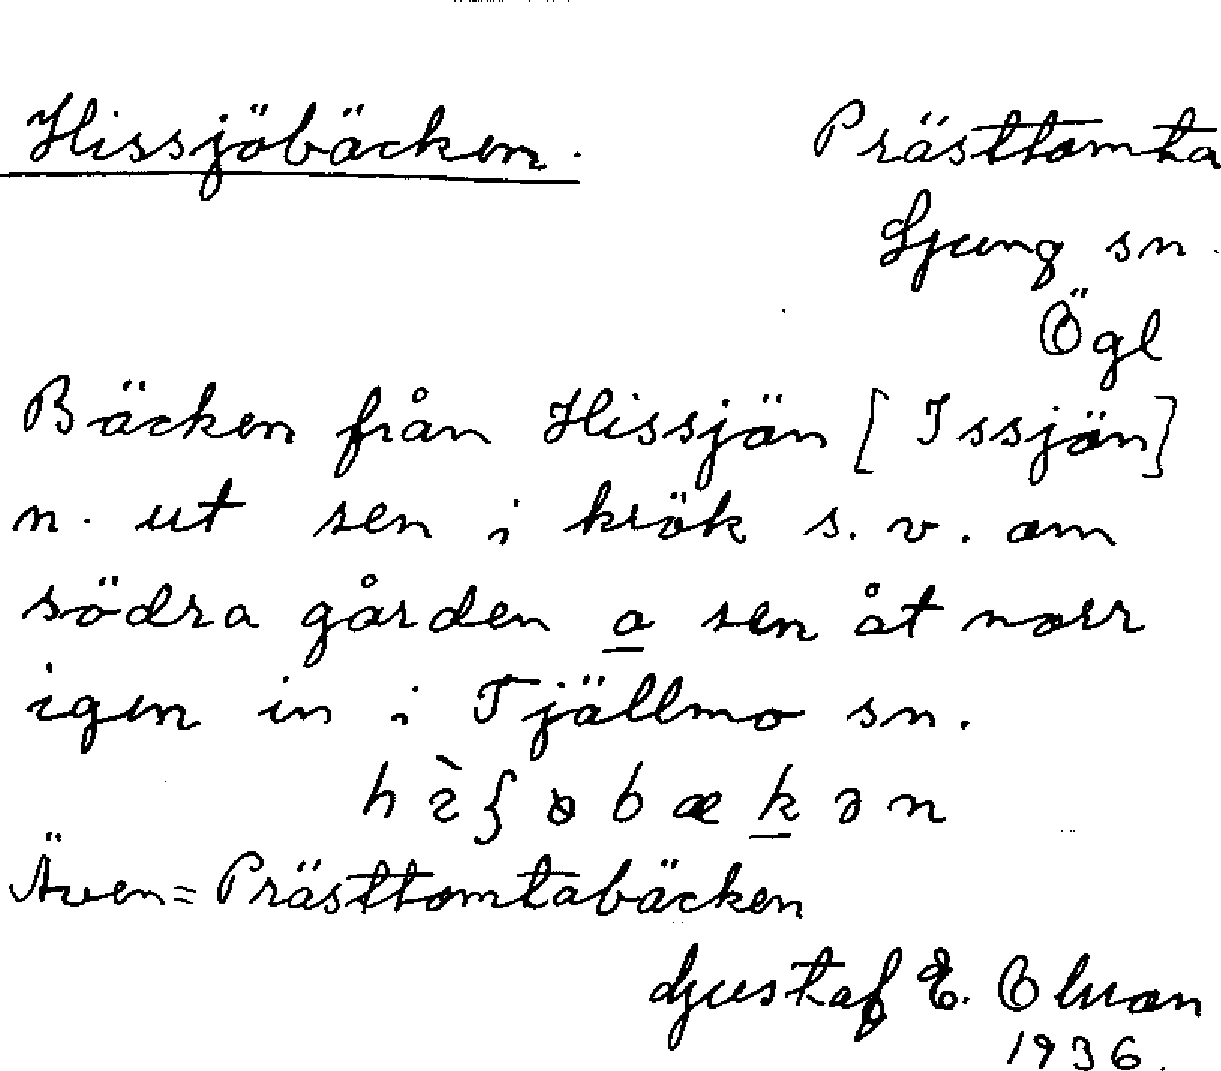 Hissjöbäcken.
Prästtomta
Ljung sn.
Ögl
Bäcken från Hissjön [Issjön]
n. ut sen i krök s.v. om
södra gården o sen åt norr
igen in i Tjällmo sn.
Även = Prästtomtabäcken
Gustaf E.
1936.